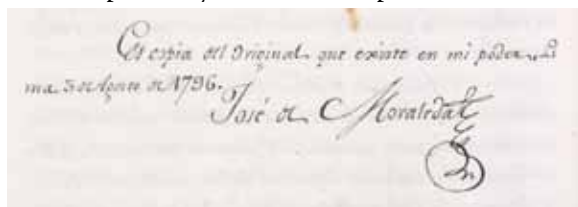 Es copia del Original que existe en mi poder. Li
ma 5 de Agosto de 1796.
José de Moraleda